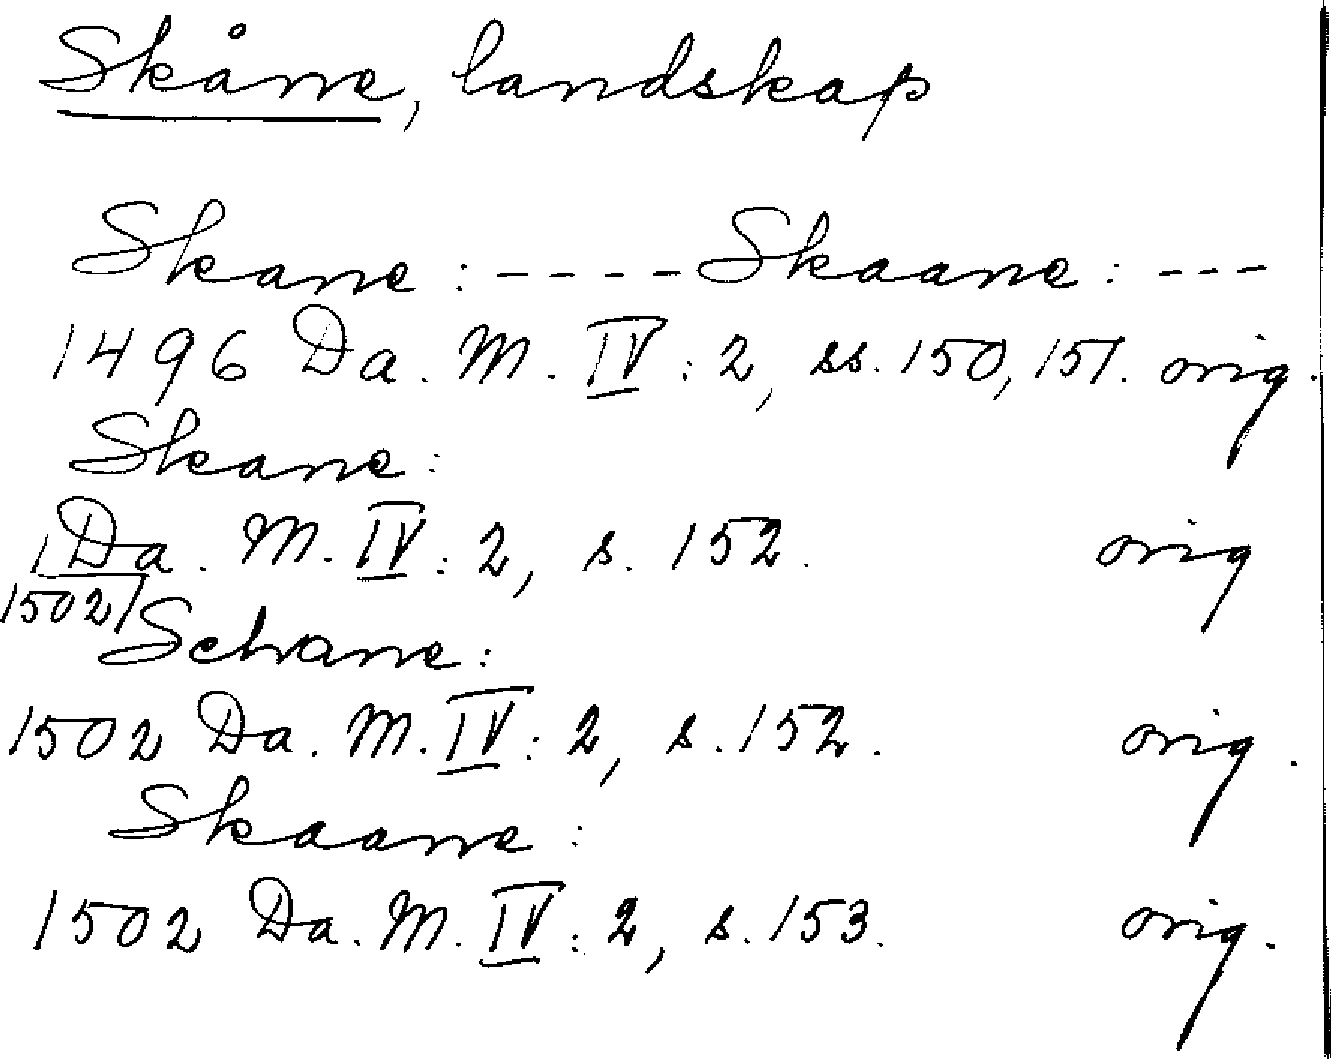 Skåne, landskap
Skane: ---- Skaane: ---
1496 Da. M. IV: 2, ss. 150, 151. orig.
Skane:
Da. M. IV: 2, s. 152. orig
1502
Schane:
1502 Da. M. IV: 2, s. 152. orig.
Skaane:
1502 Da. M. IV: 2, s. 153. orig.